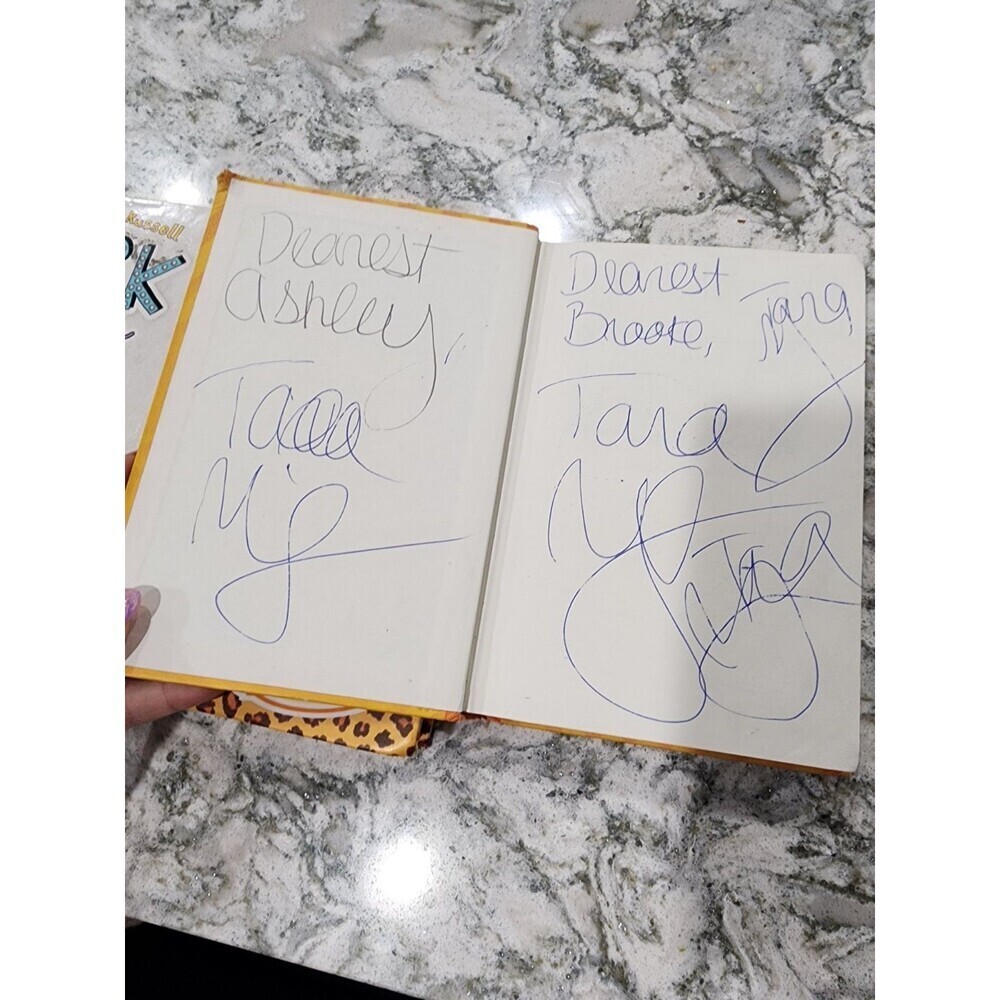 Russell
Dearest
Ashley,
Tara
M
Dearest
Brooke,
Tara
Tara
M
Tara